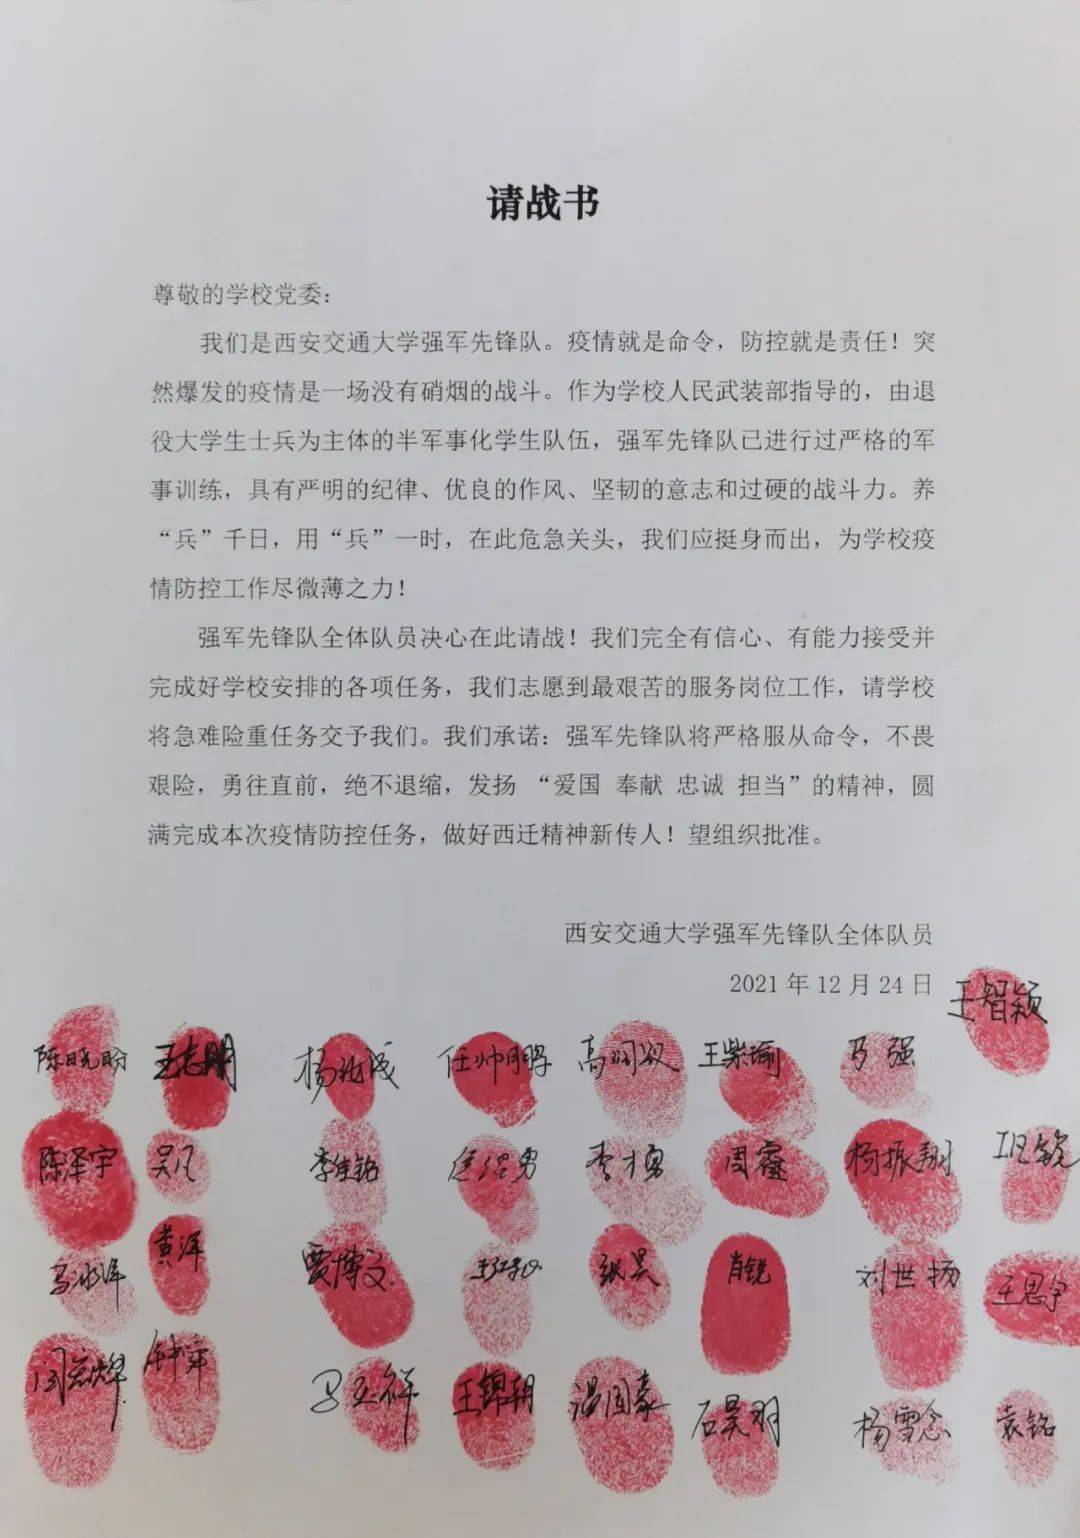 请战书
尊敬的学校党委：
我们是西安交通大学强军先锋队。疫情就是命令，防控就是责任！突
然爆发的疫情是一场没有硝烟的战斗。作为学校人民武装部指导的，由退
役大学生士兵为主体的半军事化学生队伍，强军先锋队已进行过严格的军
事训练，具有严明的纪律、优良的作风、坚韧的意志和过硬的战斗力。养
“兵”千日，用“兵”一时，在此危急关头，我们应挺身而出，为学校疫
情防控工作尽微薄之力！
强军先锋队全体队员决心在此请战！我们完全有信心、有能力接受并
完成好学校安排的各项任务，我们志愿到最艰苦的服务岗位工作，请学校
将急难险重任务交予我们。我们承诺：强军先锋队将严格服从命令，不畏
艰险，勇往直前，绝不退缩，发扬 “爱国 奉献 忠诚 担当”的精神，圆
满完成本次疫情防控任务，做好西迁精神新传人！望组织批准。
西安交通大学强军先锋队全体队员
2021 年 12 月 24 日
王智颖
陈晓盼 王志明 任帅鹏 王柴瑜 马强
陈泽宇 吴凡 李佳铭 李才勇 周睿 杨振翔
黄洋 贾博文 张昊 肖锐 刘世扬 王思宇
钟舜 马玉祥 王锦朝 温国豪 石昊羽 杨雪念 袁铭